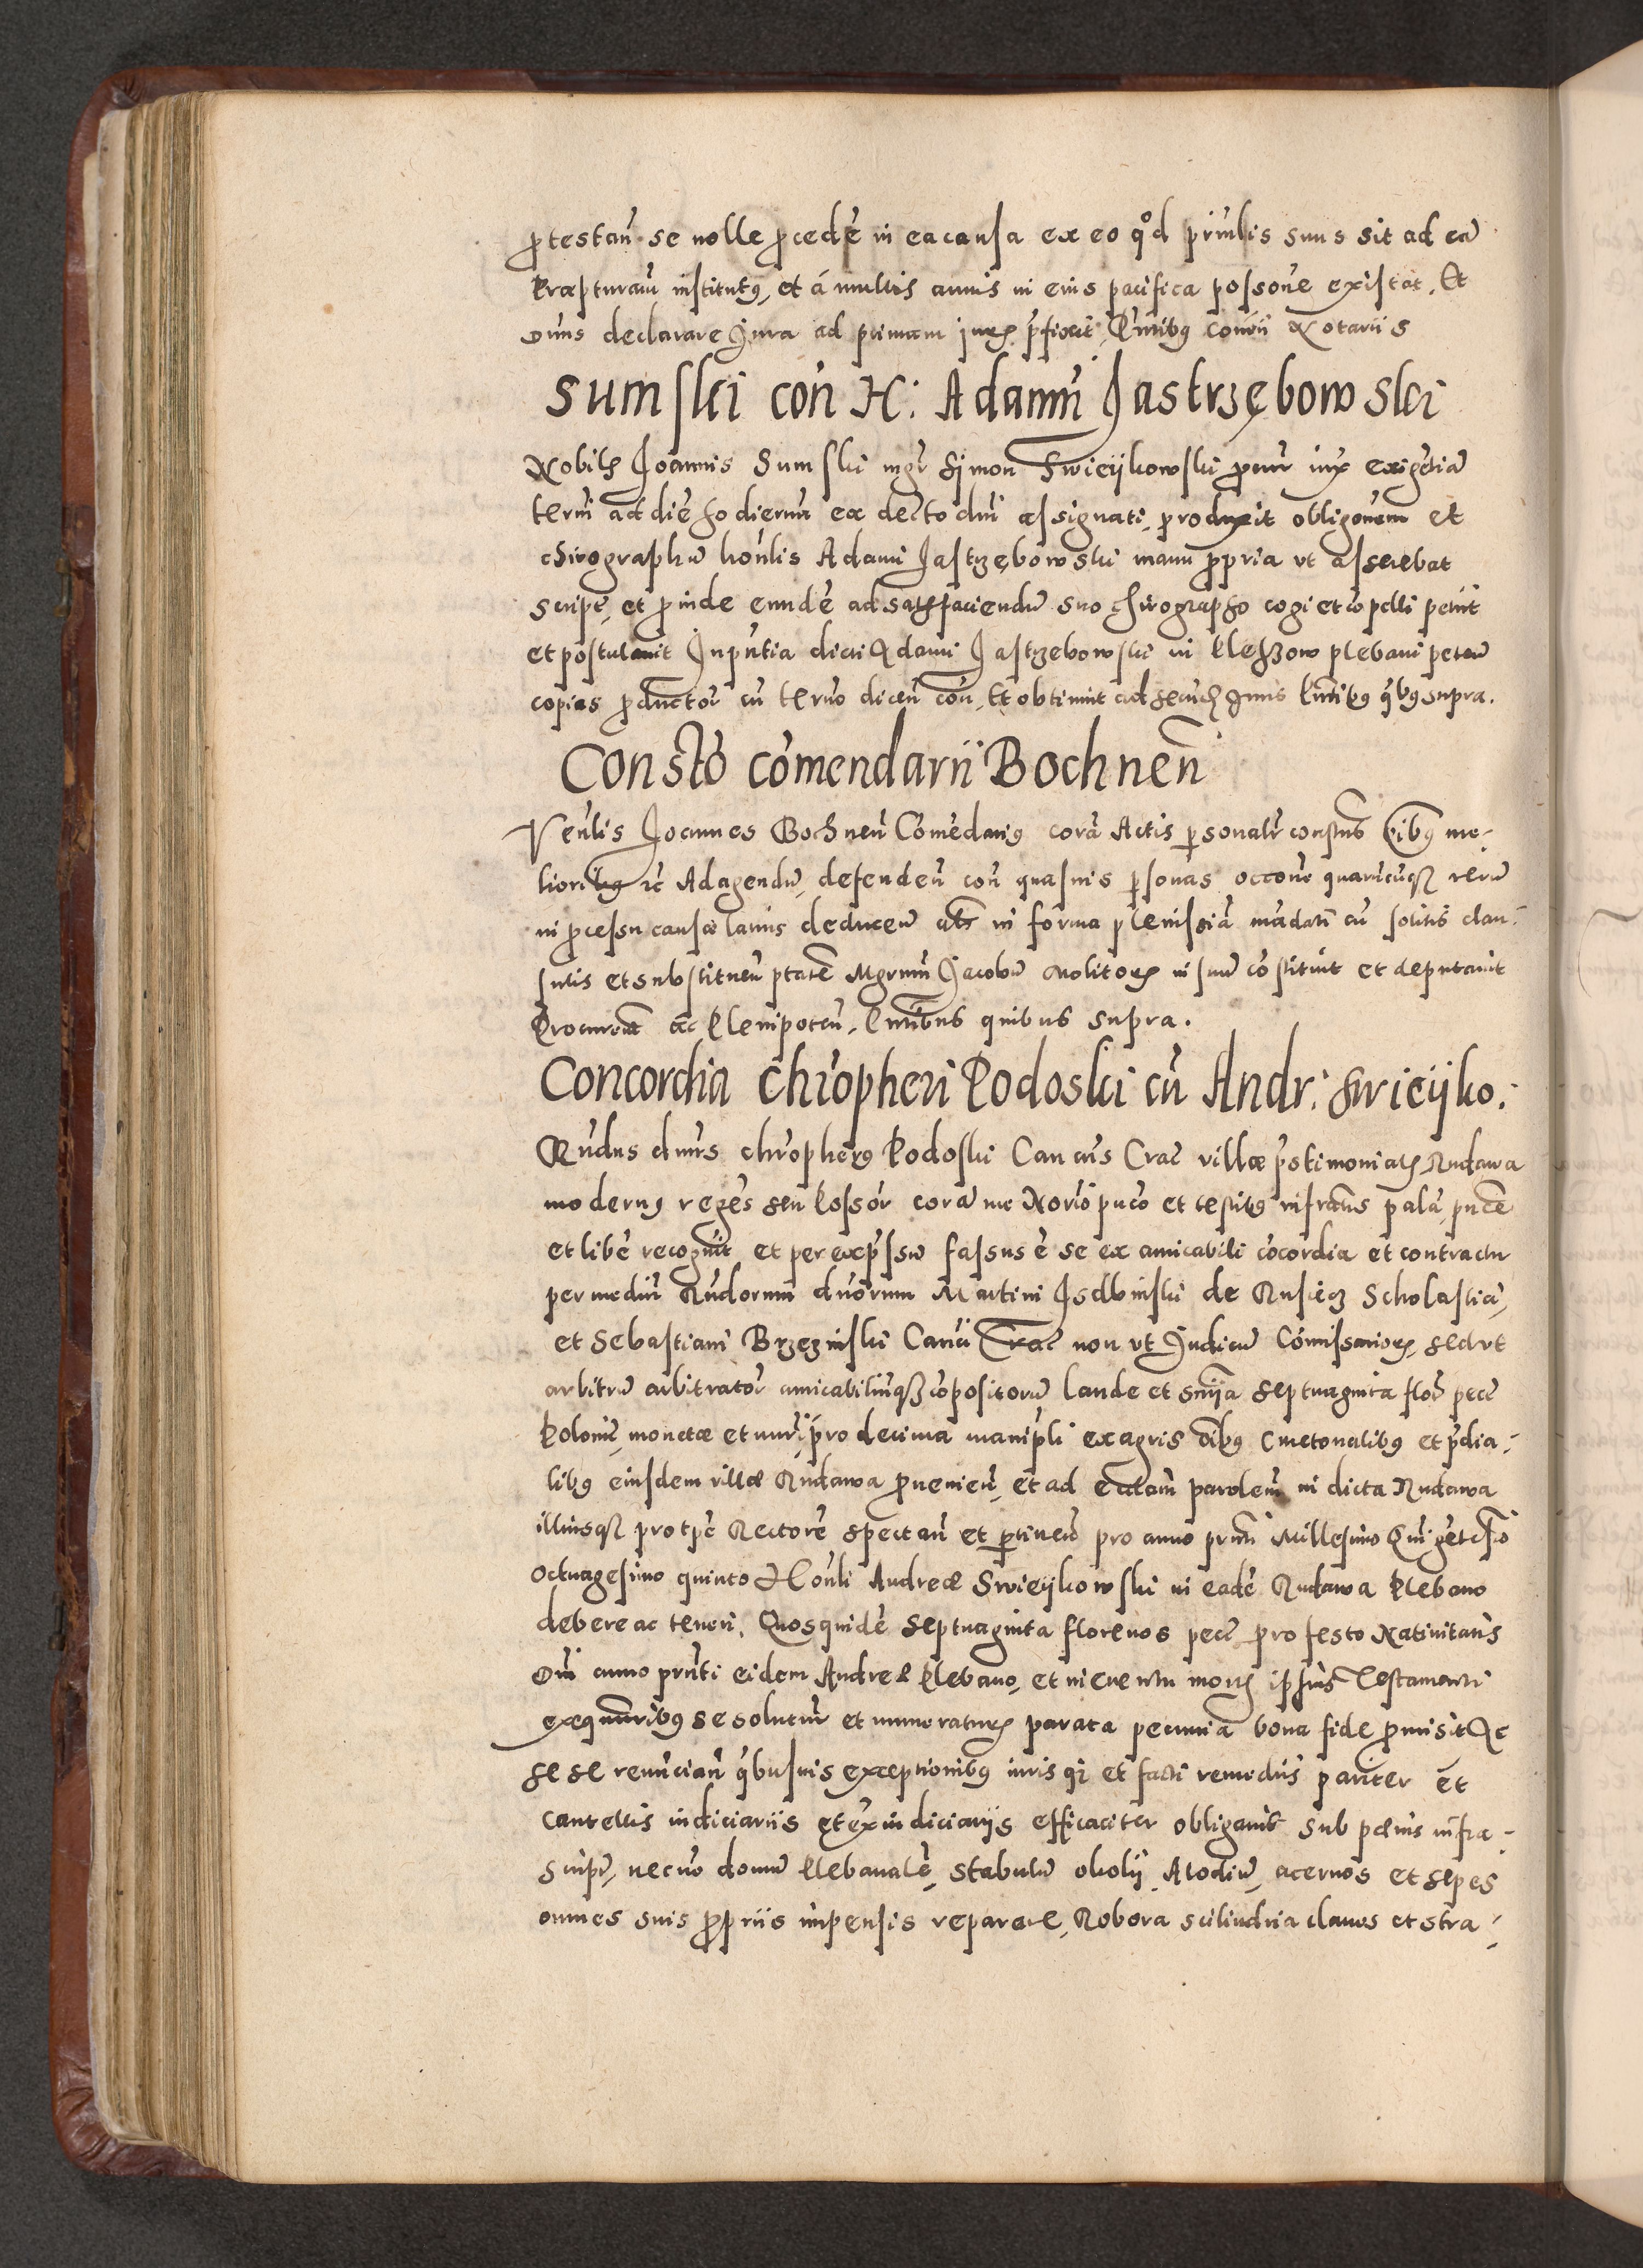 ꝓtestan̄ se nolle ꝓcedē in ea causa ex eo qd prīnlis suus sit ad eā
Præpturam institutꝯ, et á multis annis in eius pacifica possone existat. Et
Dnus declarare Jura ad primam
Notariis
Sumski con̄ H: Adamū Jastrzębowski
Nobilis Joannis Sumski mgr̄ Simon Swieijkowski ꝓcur̄ iux̄ exigētiā
term̄ ad diē hodiernā ex decto dn̄i assignati, produxit obligonem et
chirographū hon̄lis Adami Jastrzębowski manu ꝓpria vt asserebat
script, et ꝓinde eundē ad satisfaciendū suo chirographo cogi et cōpelli petiit
et postulauit Jn pn̄tia dicti Adami Jastrzebowski in Pleszow plebani peteū
copias ꝓductor̄ cū termo dicen̄ con̄, Et obtinuit ad
quibꝯ supra.
Constō cōmendarii Bochnen̄
Ven̄lis Joannes Bochnen̄ Cōmēdariꝯ corā Actis ꝑsonalr̄ constns̄ oībꝯ me-
lioribꝯ rc̄ Ad agendū, defenden̄ con̄ quasuis ꝑsonas occone quarūcūqꝫ rerū
in ꝓcessu causæ latius deducen̄ in forma plenissiā mādati cū solitis clau-
sulis et substituen̄ ptatē Mgrum Jacobū Molitorē in suū cōstituit et deputauit
Procurorē ac Plenipoten̄. Pn̄tibus quibus supra.
Concordia Chrōpheri Podoski cū Andr: Swieijko:
Rn̄dus dn̄us chrōpherꝯ Podoski Can cus Crac̄ villæ p̄stimonialis Rudawa
modernꝯ regēs seu Possōr corā me Norio puco et testibꝯ infrattis palā, puce
et libē recognit et per expīssū fassus ē se ex amicabili cōcordia et contractu
per mediū Rn̄dorum dnorum Martini Jsdbinski de Rusiecz Scholastici,
et Sebastiani Brzezinski Can̄ci Crac̄ non vt Judicū Cōmissariorꝫ, sed vt
arbitrū arbitrator̄ amicabiliūqꝫ cōpositorū laude et sn̄ija septuaginta flor̄ pecc̄
Polonic̄, monetæ et nūri pro decima manipli ex agris oībꝯ cmetonalibꝯ et p̄dia-
libꝯ eiusdem villæ Rudawa ꝓuenien̄, et ad ecclam parolem in dicta Rudawa
illiusqꝫ pro tpe Rectorē spectan̄ et ꝑtinen̄ pro anno prn̄ti Millesimo Quīgētesīo
octuagesimo quinto Hon̄li Andreæ Swieijkowski in eadē Rudawa Plebano
debere ac teneri. Quos quidē septuaginta florenos pecc̄ pro festo Natiuitatis
Dn̄i anno prn̄ti eidem Andreæ Plebano, et in euentu mortis ipsius Testamenti
exequutoribꝯ se soluturū et numeraturū parata pecunia bona fide ꝓmisit Ac
se se renūcian̄ qbusuis exceptionibꝯ iuris qꝫ et facti remediis pariter et
cautelis iudiciariis et exiudiciariis efficaciter obligauit sub pænis infra-
script, necno domū Plebanalē, stabulū obolij Alodiū, aceruos et sepes
omnes suis ꝓpriis impensis reparare, Robora scilindria clauos et stra-